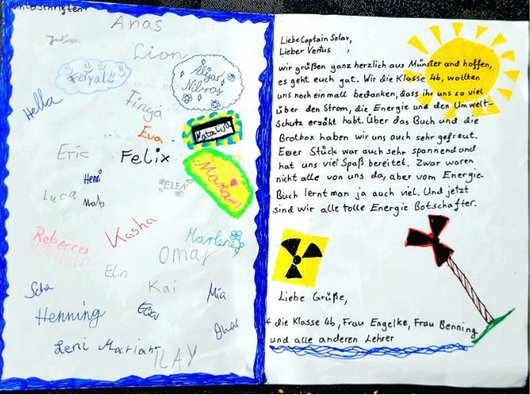 Unterschriften
Anas
Julian
Lion
Feryal
Aligar
Nilros
Hella
Finja
Eva
Natalija
Eric
Felix
Mariam
Henri
ELEN
Luca
Mats
Rebecca
Kasha
Marlene
Omar
Elin
Kai
Mia
Henning
Omar
Leni
Mariam
ILAY
Liebe Captain Solar,
Lieber Venius,
wir grüßen ganz herzlich aus Münster und hoffen,
es geht euch gut. Wir die Klasse 4b, wollten
uns noch ein mall bedanken, dass ihr uns so viel
über den Strom, die Energie und den Umwelt-
Schutz erzählt habt. Über das Buch und die
Brotbox haben wir uns auch sehr gefreut.
Euer Stück war auch sehr spannend und
hat uns viel Spaß bereitet. Zwar waren
nicht alle von uns da, aber vom Energie-
Buch lernt man ja auch viel. Und jetzt
sind wir alle tolle Energie Botschafter.
Liebe Grüße,
die Klasse 4b, Frau Engelke, Frau Benning
und alle anderen Lehrer